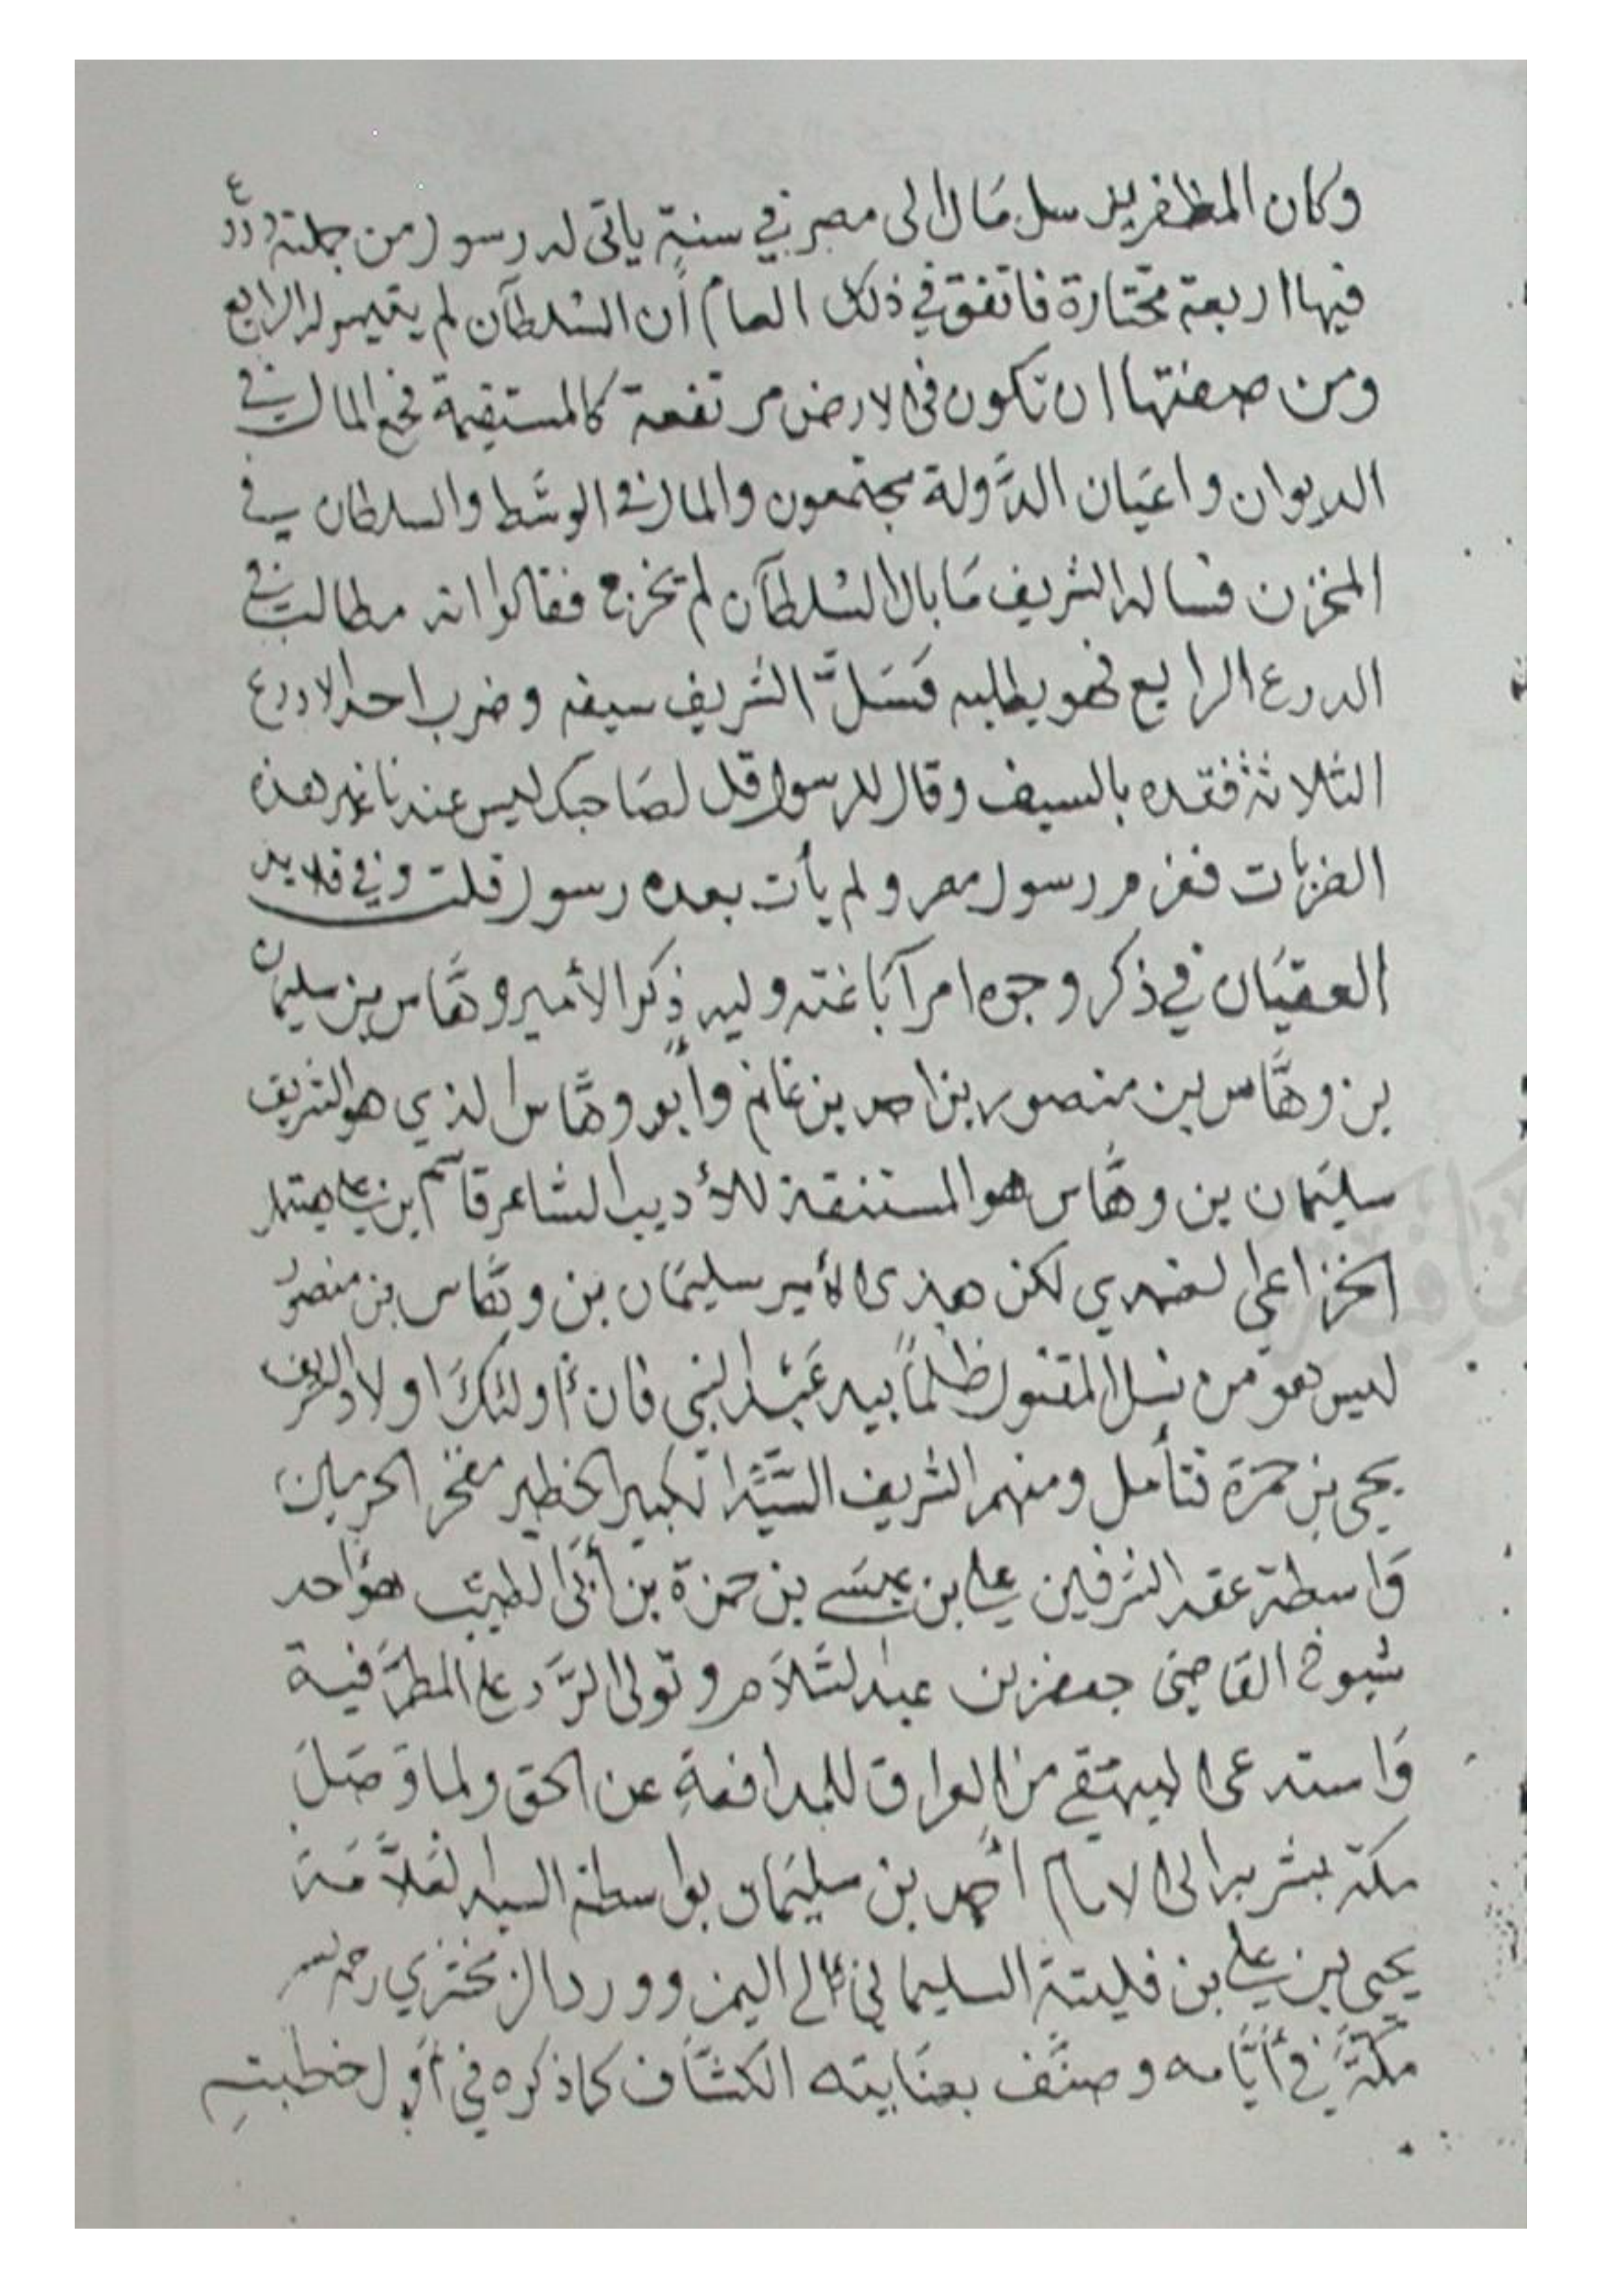 وكان المظفر يرسل مَال الى مصر في سنة ياتى له رسول من جملته درع
فيها اربعة مختارة فاتفق في ذلك العام أن السُلطان لم يتيسر له الرابع
ومن صفتها ان تكون فى الارض مرتفعة كالمستقيمة فجمع المال في
الديوان واعيَان الدَّولة مجتمعون والمال في الوسَط والسلطان في
المخزن فساله الشريف مَا بال السُلطان لم تخرج فقالوا انه مطالب في
الدرع الرابع فهو يطلبه فَسَلَّ الشريف سيفه وضرب احد الادرع
الثلاثة فقده بالسيف وقال للرسول قل لصَاحبك ليس عندنا غير هذه
الضربَات فعزم رسول مصر ولم يأت بعده رسول قلت وفي قلايد
العقيَان في ذكر وجوه امرآ باغته وليه ذِكر الأمير وهَّاس بن سليمان
بن وهَّاس بن منصور بن احمد بن غانم وأبو وهَّاس الذي هو الشريف
سليمَان بن وهَّاس هو المستنقذ للأديب الشاعر قاسم ابن علي هتيمل
الخزاعى الضمدي لكن هذى الأمير سليمَان بن وهَّاس بن منصور
ليس هو من نسل المقتول ظلماً بيد عَبْد النبي فان أولئك اولاد الشريف
يحيى بن حمزة فتأمل ومنهم الشريف السَّيِّد الكبير الخطير مفخر الحرمين
وَاسطة عقد الشرفين علي بن عيسَى بن حمزة بن أبى الطيّب هو أحد
شيوخ القاضي جعفر بن عبد السَّلَام وتولى الرَّد على المطرَّفية
وَاستدعى البيهقي من العراق للمدافعةِ عن الحق ولما وَصَلَ
مكة بشر به الى الامام أحمد بن سليمَان بواسطة السيد العَلاَّمَة
يحيى بن علي بن فليتة السليماني الى اليمن وورد الزمخشري رحمه الله
مكَّةَ في أيَّامه وصنَّف بعنَايته الكشَّاف كما ذكره في أوّل خطبتهِ